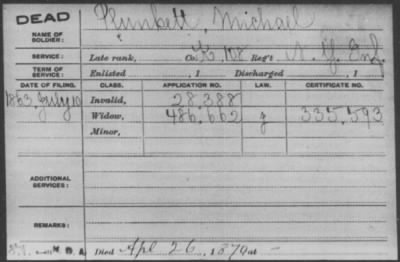 DEAD
NAME OF SOLDIER: Plunkett, Michael
SERVICE: Late rank, Co. K, 108 Reg't N.Y. Inf.
TERM OF SERVICE: Enlisted , 1 Discharged , 1
DATE OF FILING. CLASS. APPLICATION NO. LAW. CERTIFICATE NO.
1863 July 10 Invalid, 28.388
Widow, 486.662 g 335.593
Minor,
ADDITIONAL SERVICES:
REMARKS:
Died Apl 26, 1870 at -